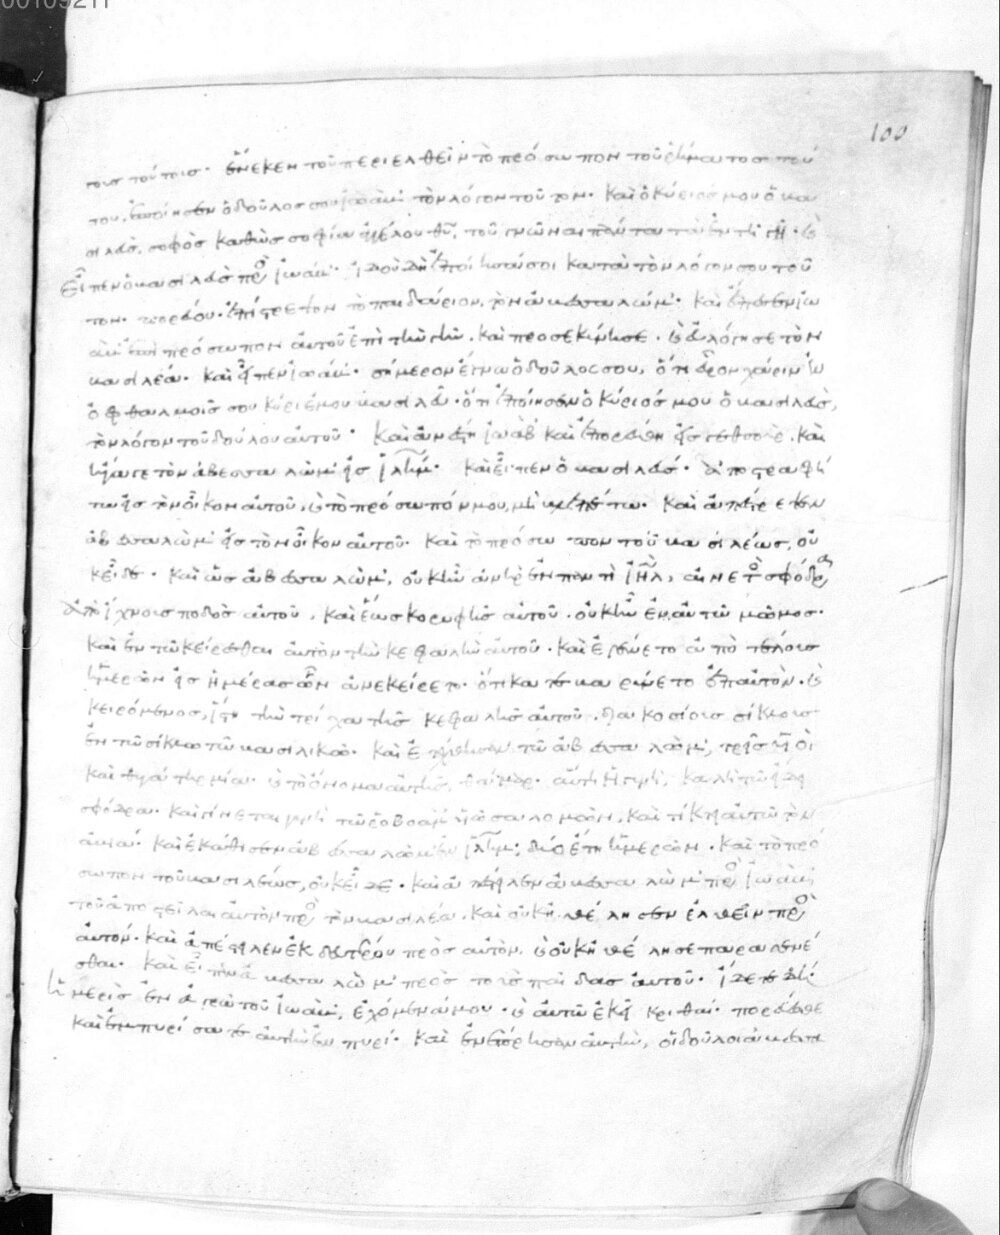 00109211
100
τους τούτους. ἕνεκεν τοῦ περιελθεῖν τὸ πρόσωπον τοῦ ῥήματος τού
του, ἐποίησεν ὁ δοῦλός σου ἰωὰβ τὸν λόγον τοῦτον. καὶ ὁ κύριός μου ὁ βα
σιλεὺς, σοφὸς καθὼς σοφία ἀγγέλου θῦ, τοῦ γνῶναι πάντα τὰ ἐν τῇ γῇ. καὶ
εἶπεν ὁ βασιλεὺς πρὸς ἰωάβ. ἰδοὺ δὴ ἐποίησά σοι κατὰ τὸν λόγον σου τοῦ
τον. πορεύου. ἐπίστρεψον τὸ παιδάριον, τὸν ἀβεσσαλώμ. καὶ ἔπεσεν ἰω
ὰβ ἐπὶ πρόσωπον αὐτοῦ ἐπὶ τὴν γῆν. καὶ προσεκύνησε. καὶ εὐλόγησε τὸν
βασιλέα. καὶ εἶπεν ἰωάβ. σήμερον ἔγνω ὁ δοῦλος σου, ὅτι εὗρον χάριν ἐν
ὀφθαλμοῖς σου κύριέ μου βασιλεῦ. ὅτι ἐποίησεν ὁ κύριός μου ὁ βασιλεὺς,
τὸν λόγον τοῦ δούλου αὐτοῦ. καὶ ἀνέστη ἰωὰβ καὶ ἐπορεύθη εἰς γεθσούρ. καὶ
ἤγαγε τὸν ἀβεσσαλὼμ εἰς ἰλημ. καὶ εἶπεν ὁ βασιλεύς. ἀποστραφή
τω εἰς τὸν οἶκον αὐτοῦ, καὶ τὸ πρόσωπόν μου, μὴ βλεπέτω. καὶ ἀπέστρεψεν
ἀβεσσαλὼμ εἰς τὸν οἶκον αὐτοῦ. καὶ τὸ πρόσωπον τοῦ βασιλέως, οὐ
κ εἶδε. καὶ ὡς ἀβεσσαλώμ, οὐκ ἦν ἀνὴρ ἐν παντὶ ἰηλ, αἰνετὸς σφόδρα
ἀπὸ ἴχνους ποδὸς αὐτοῦ, καὶ ἕως κορυφῆς αὐτοῦ. οὐκ ἦν ἐν αὐτῶ μῶμος.
καὶ ἐν τῶ κείρεσθαι αὐτὸν τὴν κεφαλὴν αὐτοῦ. καὶ ἐγένετο ἀπὸ τέλους
ἡμερῶν εἰς ἡμέρας ὧν ἀνεκείρετο. ὅτι κατεβαρύνετο ἐπ αὐτὸν. καὶ
κειρόμενος, ἵστη τὴν τρίχα τῆς κεφαλῆς αὐτοῦ, διακοσίους σίκλους
ἐν τῶ σίκλω τῶ βασιλικῶ. καὶ ἐτέχθησαν τῶ ἀβεσσαλώμ, τρεῖς υἱοὶ
καὶ θυγάτηρ μία. καὶ τὸ ὄνομα αὐτῆς, θαμάρ. αὕτη ἦν γυνὴ, καλὴ τῶ εἴδει
σφόδρα. καὶ γίνεται γυνὴ τῶ ῥοβοὰμ υἱῶ σαλομών, καὶ τίκτει αὐτῶ τὸν
ἀβιά. καὶ ἐκάθισεν ἀβεσσαλὼμ ἐν ἰλημ, δύο ἔτη ἡμερῶν. καὶ τὸ πρό
σωπον τοῦ βασιλέως, οὐκ εἶδε. καὶ ἀπέστειλεν ἀβεσσαλὼμ πρὸς ἰωὰβ
τοῦ ἀποστεῖλαι αὐτὸν πρὸς τὸν βασιλέα. καὶ οὐκ ἠθέλησεν ἐλθεῖν πρὸς
αὐτόν. καὶ ἀπέστειλεν ἐκ δευτέρου πρὸς αὐτὸν, καὶ οὐκ ἠθέλησε παραγενέ
σθαι. καὶ εἶπεν ἀβεσσαλὼμ πρὸς τοὺς παῖδας αὐτοῦ. ἴδετε ἡ
μερὶς ἐν ἀγρῶ τοῦ ἰωάβ, ἐχόμενά μου. καὶ αὐτῶ ἐκεῖ κριθαί. πορεύεσθε
καὶ ἐμπυρίσατε αὐτὴν ἐν πυρί. καὶ ἐνέπρησαν αὐτὴν, οἱ δοῦλοι ἀβεσσα